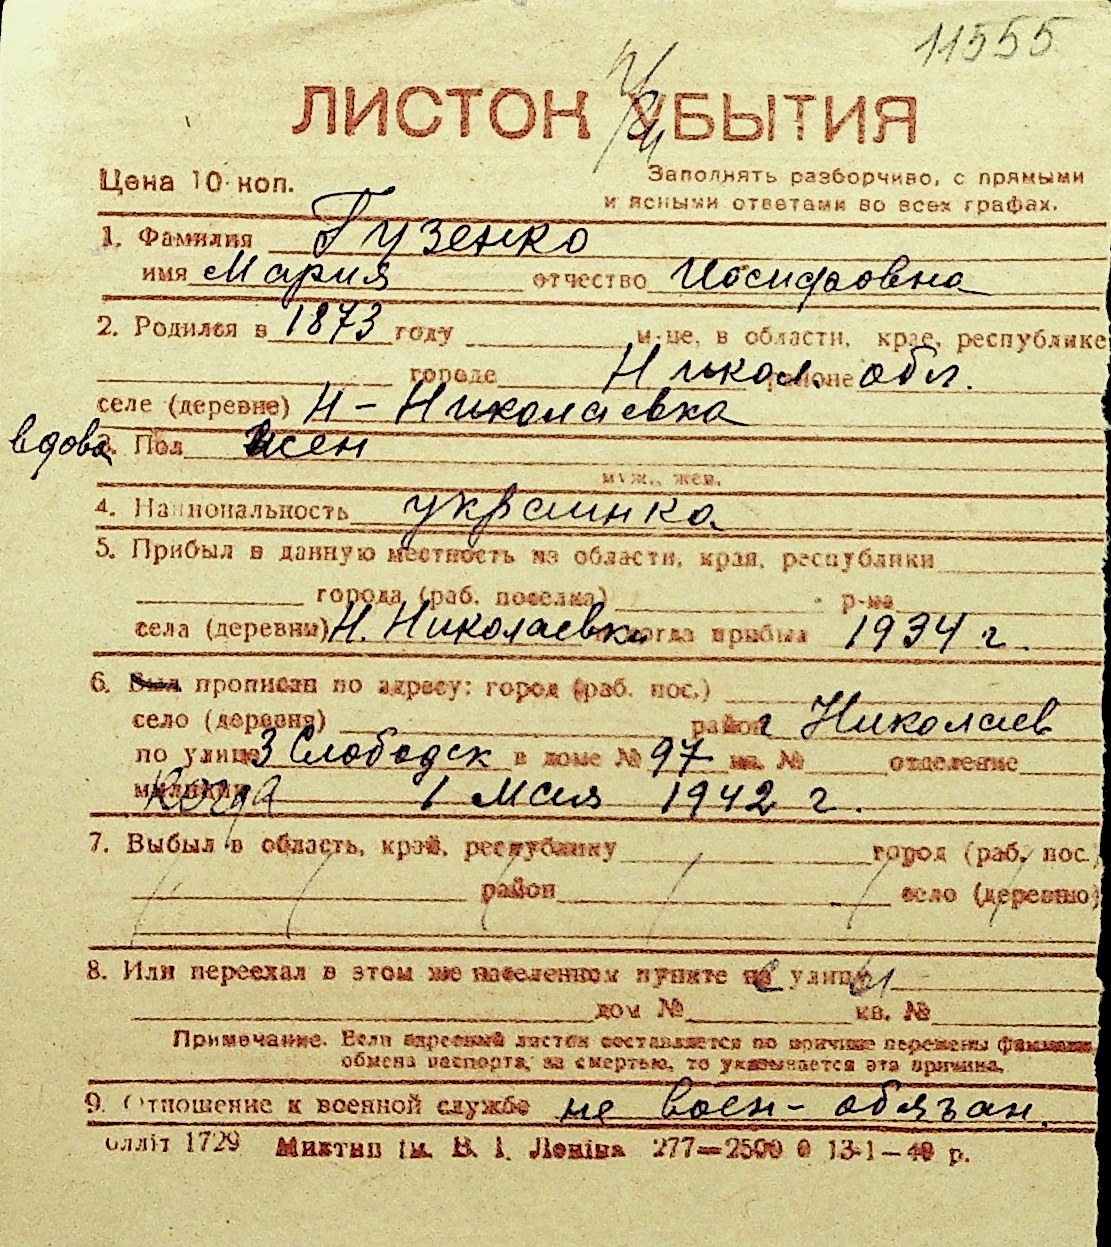 11555
ЛИСТОК УБЫТИЯ
Цена 10 коп.
Заполнять разборчиво, с прямыми
и ясными ответами во всех графах.
1. Фамилия Гузенко
имя Мария отчество Иосифовна
2. Родился в 1873 году м-це, в области, крае, республике
городе Никол. районе обл.
селе (деревне) Н-Николаевка
вдова 3. Пол жен
муж., жен.
4. Национальность украинка
5. Прибыл в данную местность из области, края, республики
города (раб. поселка) р-на
села (деревни) Н. Николаевка когда прибыл 1934 г.
6. Был прописан по адресу: город (раб. пос.)
село (деревня) район г Николаев
по улице 3 Слободск в доме № 97 кв. № отделение
милиции Когда 1 Мая 1942 г.
7. Выбыл в область, край, республику город (раб. пос.)
район село (деревню)
8. Или переехал в этом же населенном пункте на улицу
дом № кв. №
Примечание. Если адресный листок составляется по причине перемены фамилии,
обмена паспорта, за смертью, то указывается эта причина.
9. Отношение к военной службе не воен-обязан.
блліт 1729 Миктип ім. В. І. Леніна 277—2500 0 13-1—40 р.